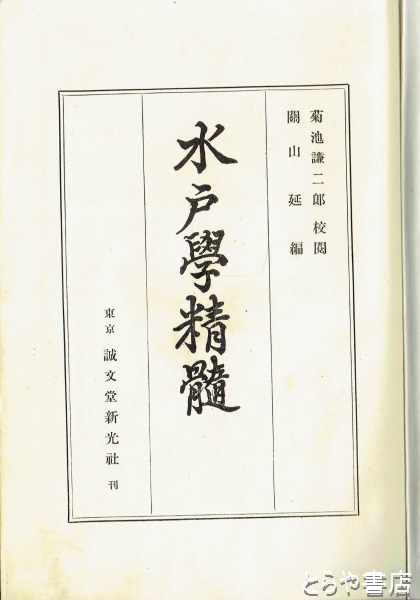 菊池謙二郎 校閲
關山延 編
水戸學精髓
東京 誠文堂新光社 刊
とらや書店